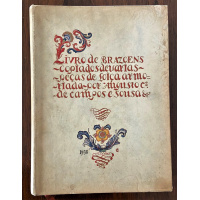 LIVRO de BRAZOENS
copiados de varias
peças de loiça armo-
riada por Augusto c.
de campos e sousa